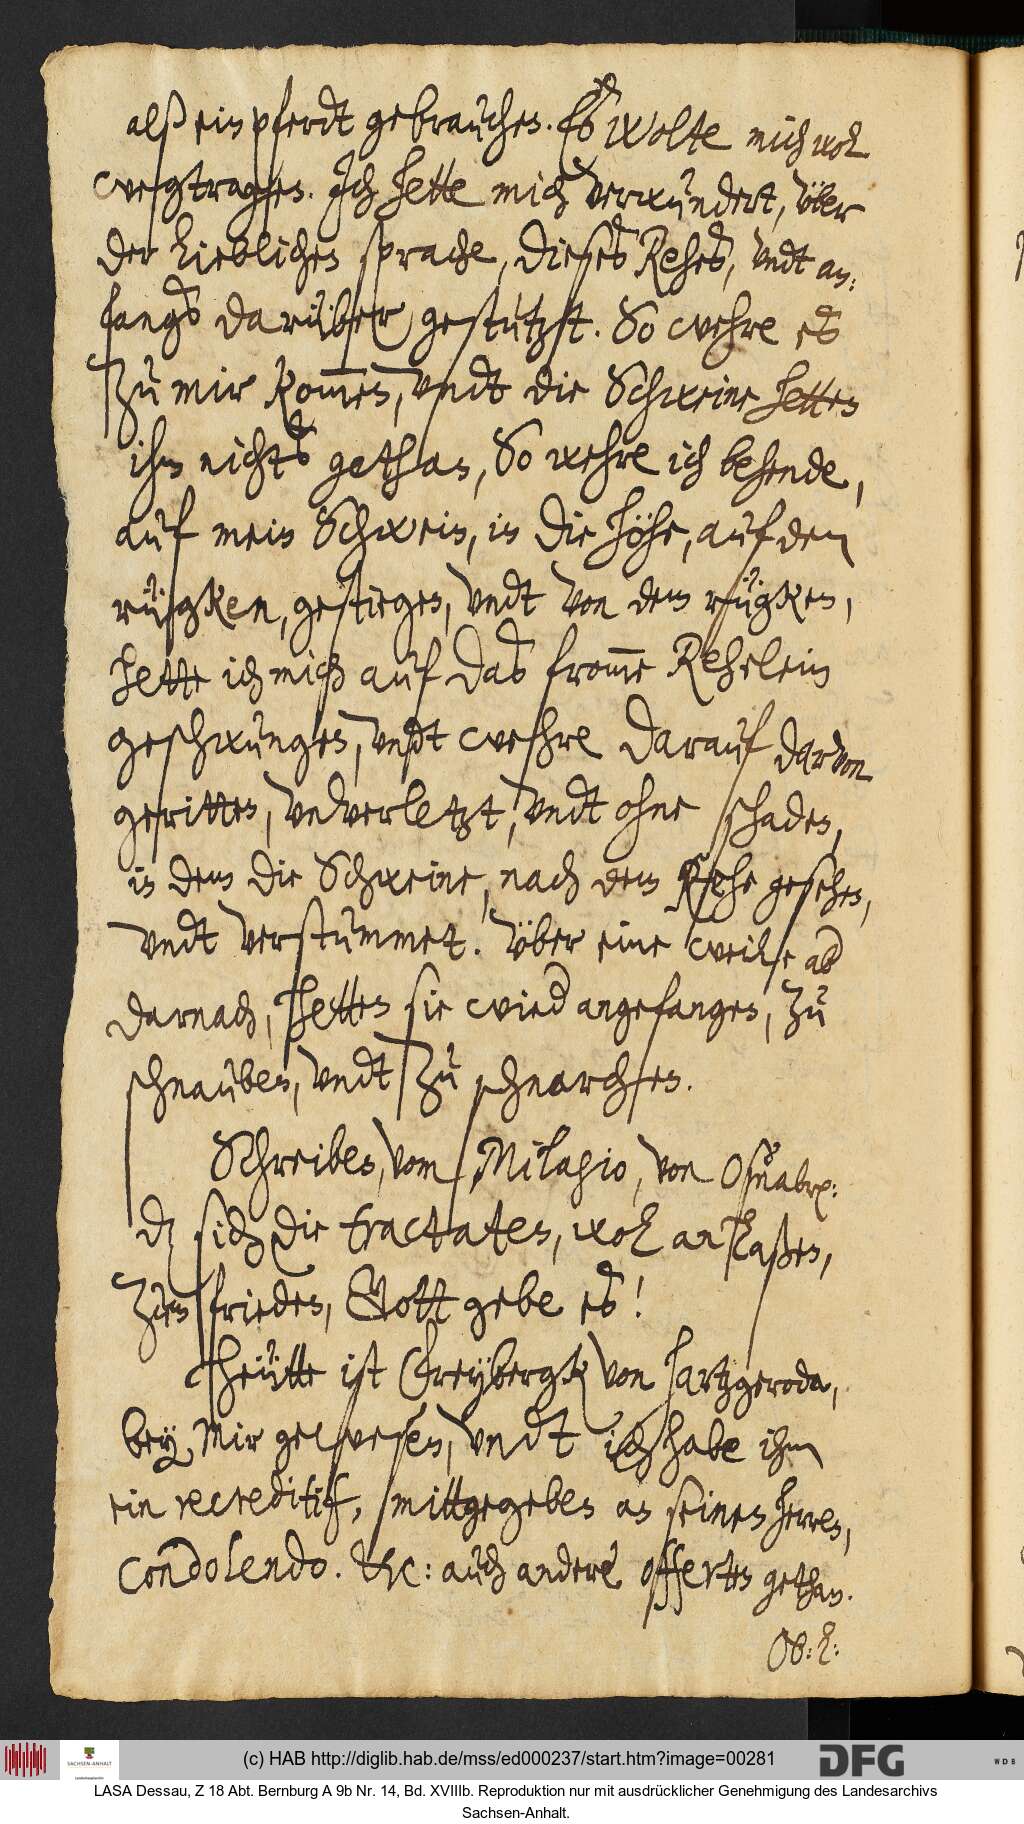 alß ein pferdt gebrauchen. Es wolte mich wol
wegtragen. Ich hette mich verwundert, über
der lieblichen sprache, dieses Rehes, undt an-
fangs darüber gestutzt. So wehre es
zu mir kom̅en, undt die Schweine hetten
ihm nichts gethan, So wehre ich behende,
auf mein Schwein, in die höhe, auf den
rügken, gestiegen, undt von dem rügken,
hette ich mich auf das from̅e Rehelein
geschwungen, undt wehre darauf darvon
geritten, unverletzt, undt ohne schaden,
in dem die Schweine, nach dem Rehe gesehen,
undt verstummet. Über eine weile ab
darnach, hetten sie wied angefangen, zu
schnauben, undt zu schnarchen.
Schreiben, vom Milagio, von Oßnabr:
dz sich die tractaten, wol anlaßen,
zum frieden, Gott gebe es!
Heütte ist Freybergk von hartzgeroda,
bey mir gewesen, undt ich habe ihm
ein recreditif, mittgegeben an seinen herren,
Condolendo. &c: auch andere offerten gethan.
Ob: L:
(c) HAB http://diglib.hab.de/mss/ed000237/start.htm?image=00281
SACHSEN-ANHALT
DFG
WDB
LASA Dessau, Z 18 Abt. Bernburg A 9b Nr. 14, Bd. XVIIIb. Reproduktion nur mit ausdrücklicher Genehmigung des Landesarchivs
Sachsen-Anhalt.